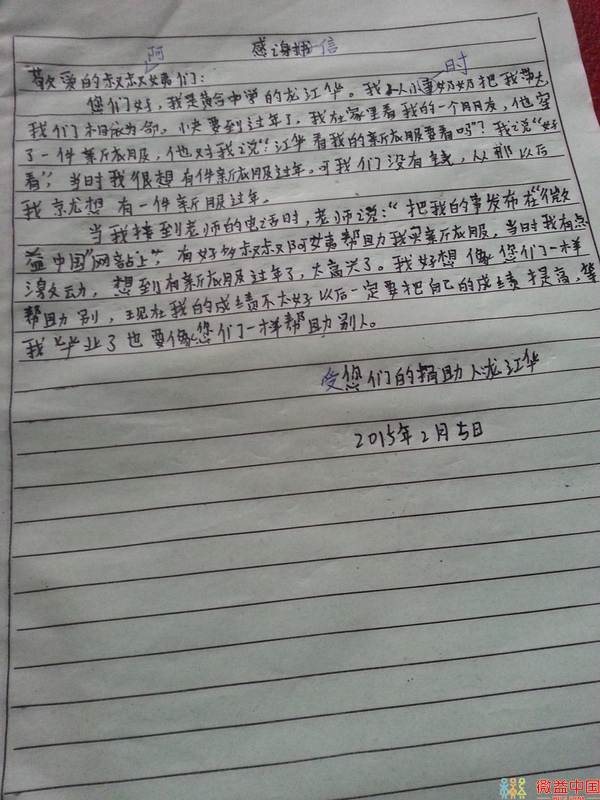 感谢信
敬爱的叔叔阿姨们:
您们好,我是黄合中学的龙江华。我从小时奶奶把我带大
我们相依为命。快要到过年了,我在家里看我的一个月朋友,他穿
了一件新衣服,他对我说:"江华看我的新衣服要看吗"?我说"好
看",当时我很想有件新衣服过年。可我们没有钱,从那以后
我就想有一件新服过年。
当我接到老师的电话时,老师说:"把我的事发布在"微
益中国"网站上",有好多叔叔阿姨帮助我买新衣服,当时我有点
激动,想到有新衣服过年了,太高兴了。我好想像您们一样
帮助别,现在我的成绩不太好以后一定要把自己的成绩提高,等
我毕业了也要像您们一样帮助别人。
受您们的捐助人龙江华
2015年2月5日
微益中国